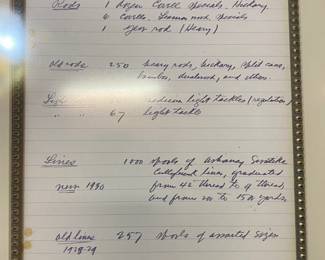 Rods 1 dozen Cowell Specials - Hickory
6 Cowells - Seamon rod Specials
1 spex rod (Heavy)
Old rods 250 heavy rods, hickory, split cane,
bamboo, dualwood, and others.
light tackles (regulation)
" " 67 light tackle
Lines 1000 spools of Ashaway Swastika
Cuttyhunk lines, graduated
new 1930 from 42 thread to 9 thread,
and from 200 to 1500 yards.
old lines 257 spools of assorted sizes
1928-29